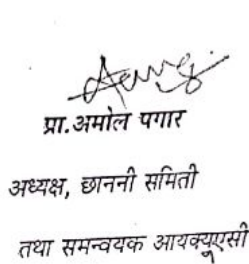 प्रा.अमोल पगार
अध्यक्ष, छाननी समिती
तथा समन्वयक आयक्यूएसी